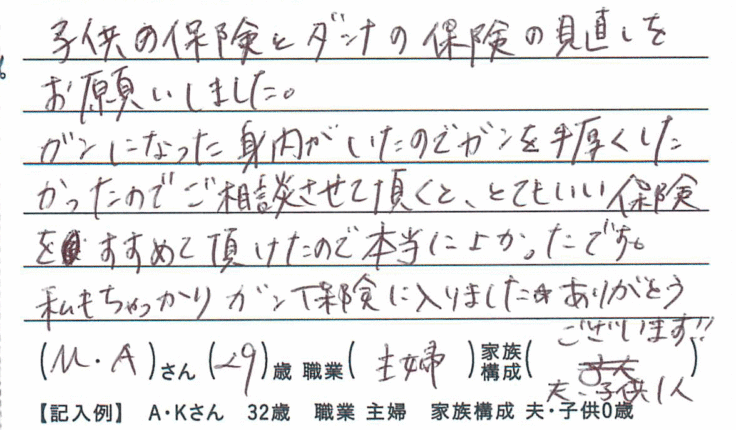 子供の保険とダンナの保険の見直しを
お願いしました。
ガンになった身内がいたのでガンを手厚くした
かったのでご相談させて頂くと、とてもいい保険
をすすめて頂けたので本当によかったです。
私もちゃっかりガン保険に入りました☆ありがとう
ございます!!
(M・A)さん (29)歳 職業(主婦)家族構成(夫・子供1人)
【記入例】 A・Kさん 32歳 職業 主婦 家族構成 夫・子供0歳